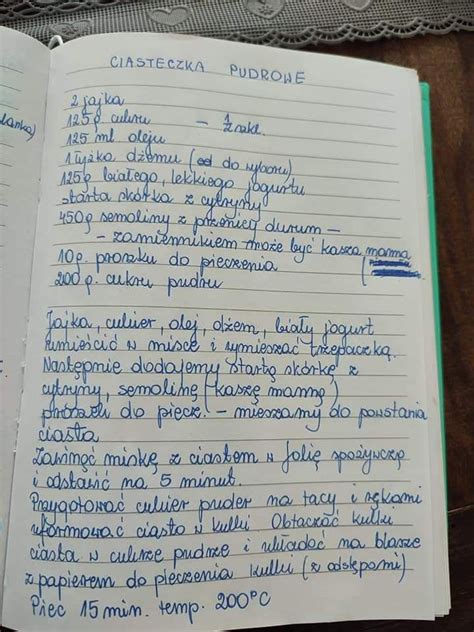 CIASTECZKA PUDROWE
2 jajka
125 g cukru – 1 szkl.
125 ml oleju
1 łyżka dżemu (do wyboru)
125g białego, lekkiego jogurtu
starta skórka z cytryny
450g semoliny z pszenicy durum –
– zamiennikiem może być kasza manna
10g. proszku do pieczenia
200g. cukru pudru
Jajka, cukier, olej, dżem, biały jogurt
umieścić w misce i wymieszać trzepaczką.
Następnie dodajemy startą skórkę z
cytryny, semolinę (kaszę mannę)
proszek do piecz. – mieszamy do powstania
ciasta
Zawinąć miskę z ciastem w folię spożywczą
i odstawić na 5 minut.
Przygotować cukier puder na tacy i rękami
uformować ciasto w kulki Obtaczać kulki
ciasta w cukrze pudrze i układać na blasze
z papierem do pieczenia kulki (z odstępami)
Piec 15 min. temp. 200°C